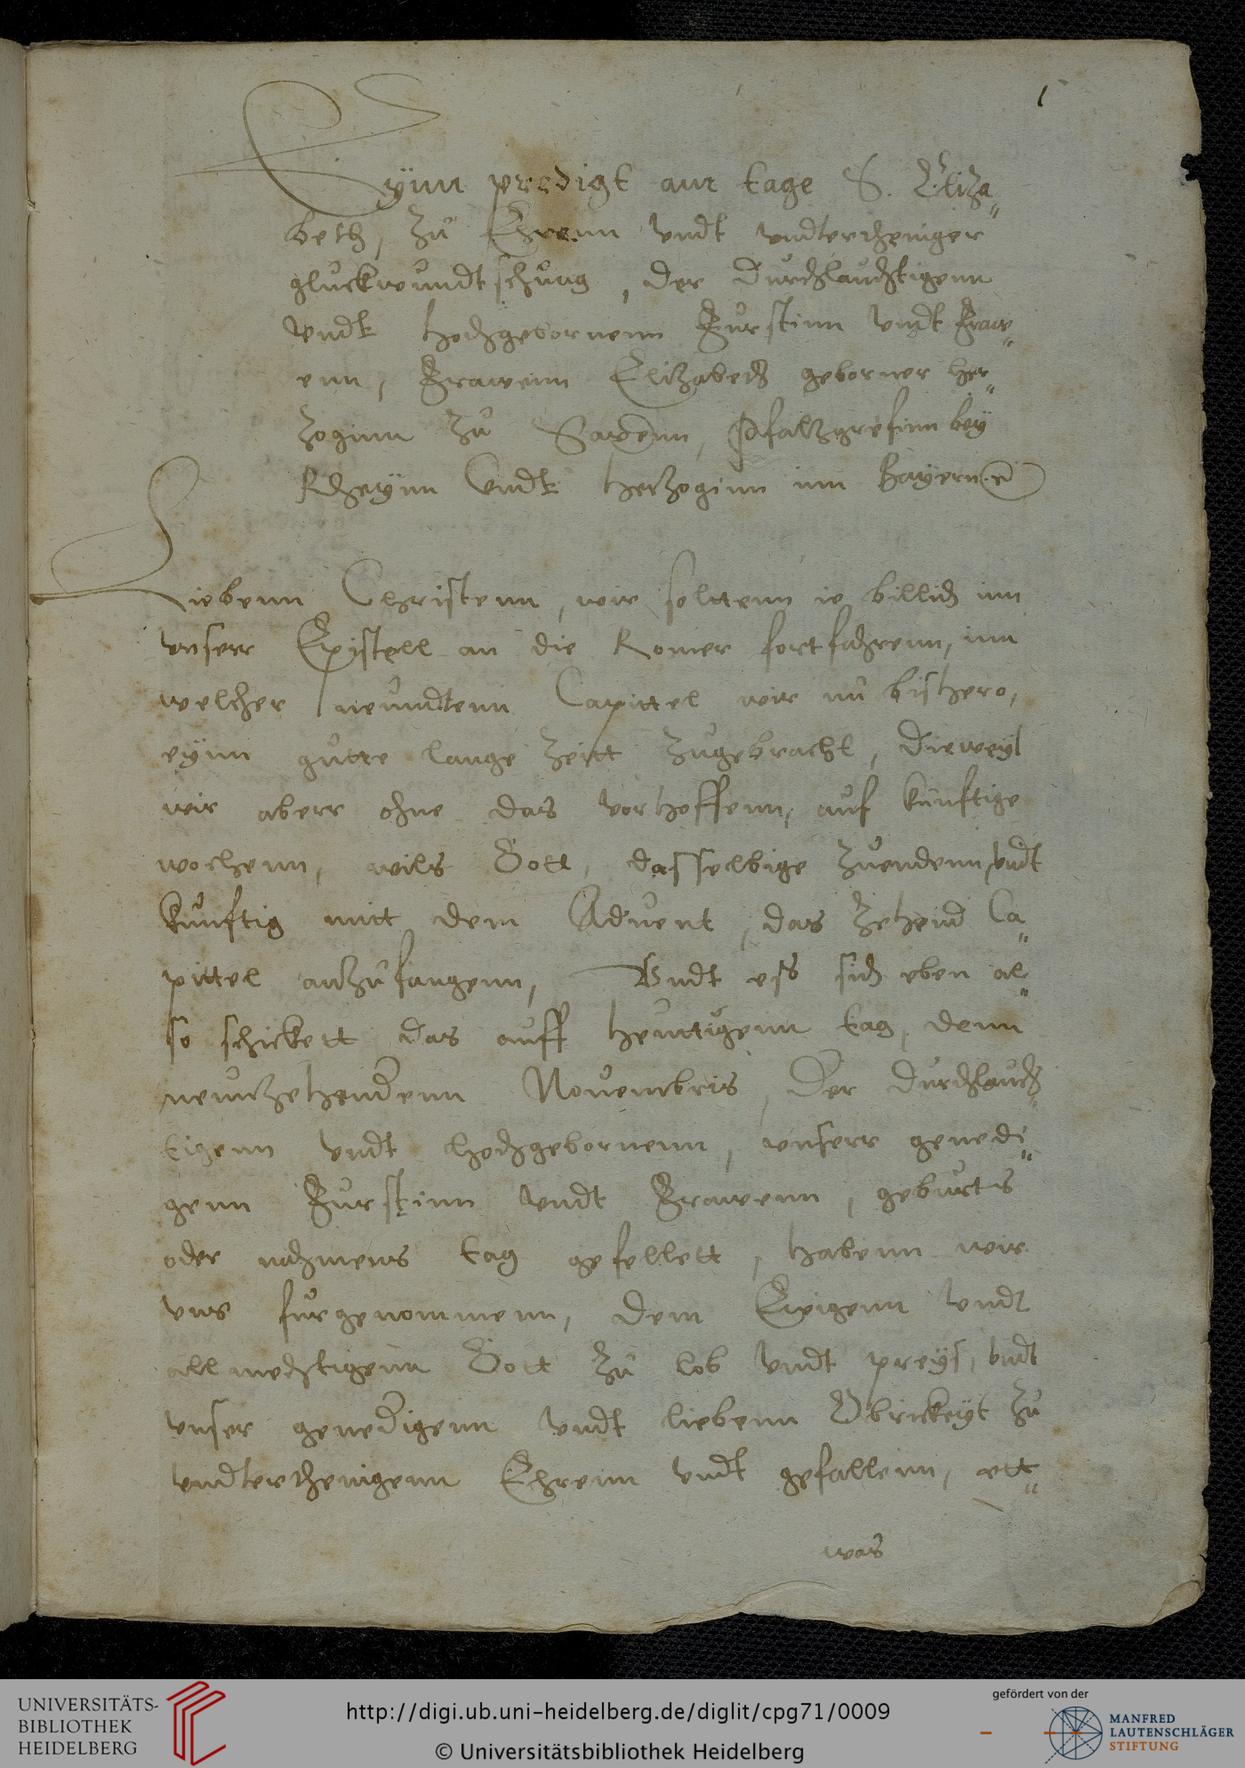 1
Eynn predigt amt tage S. Eliza⸗
beth, zu Ehrenn vndt vndtertheniger
gluckwundtschung, der Durchlauchtigenn
vndt hochgebornenn Furstinn vndt Fraw⸗
enn, Frawenn Elizabeth geborner her⸗
zoginn zu Saxenn, Pfalzgrefinn bey
Rheynn vndt herzoginn inn Bayern
Liebenn Christenn, wir solttenn ie billich inn
vnserr Epistell an die Romer fortfahrenn, inn
welcher neundtenn Capittel wir nu bishero,
eynn gutte lange zeitt zugebracht, Dieweyl
wir aberr ohne das vorhoffenn, auf kunftige
wochenn, wils Gott, dasselbige zuendenn, vndt
kunftig mitt dem Advent, das zehend Ca⸗
pittel anzufangenn, Vndt ess sich eben al⸗
so schickett das auff heuttigenn tag, denn
neunzehendenn Novembris, Der Durchlauch⸗
tigenn vndt hochgebornenn, vnserr genedi⸗
genn Furstinn vndt Frawenn, geburts
oder nahmens tag gefellett, habenn wir
vns furgenommenn, dem Ewigenn vndt
allmechtigenn Gott zu lob vndt preys, vndt
vnser genedigenn vndt liebenn Obrickeyt zu
vndterthenigenn Ehrenn vndt gefallenn, ett⸗
was
UNIVERSITÄTS-
BIBLIOTHEK
HEIDELBERG
http://digi.ub.uni-heidelberg.de/diglit/cpg71/0009
© Universitätsbibliothek Heidelberg
gefördert von der
MANFRED
LAUTENSCHLÄGER
STIFTUNG